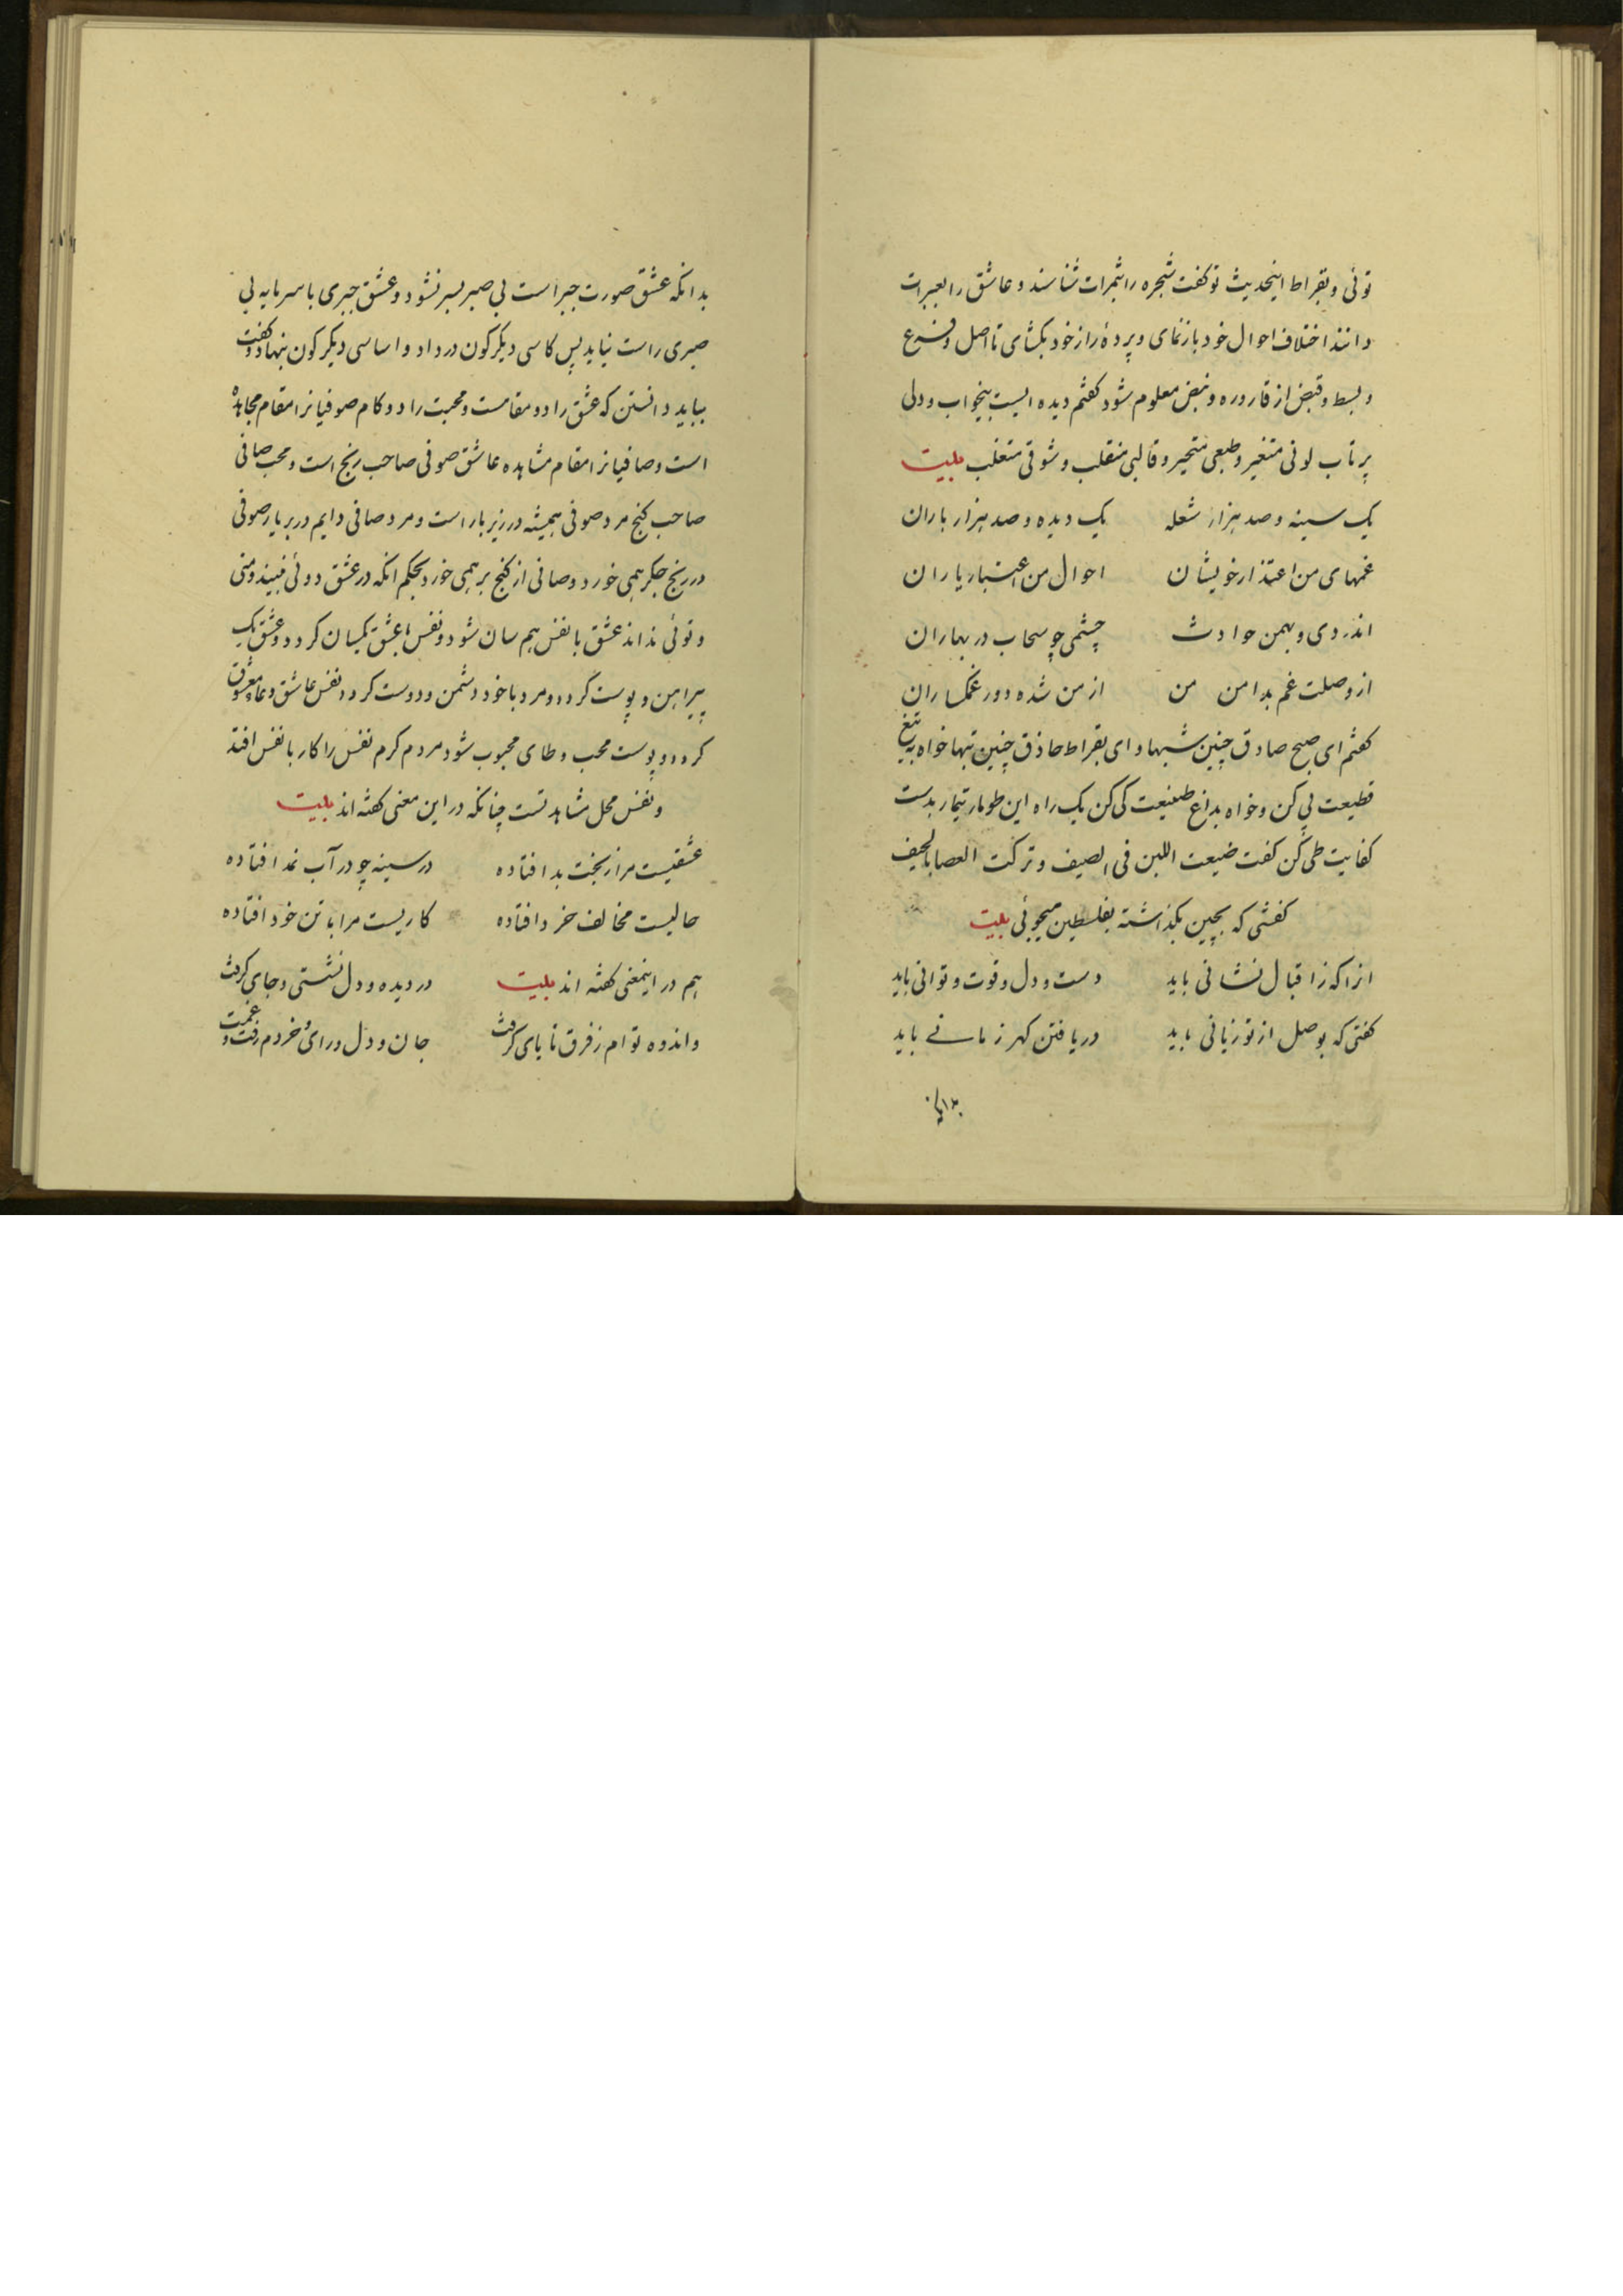 توئی و بقراط اینحدیث تو کفت شجره را بثمرات شناسند و عاشق را بعبرات
دانند اختلاف احوال خود بازنمای و پردهٔ راز خود بکشای تا اصل و فرع
و بسط و قبض از قاروره و نبض معلوم شود کفتم دیده ایست بیخواب و دلی
پرتاب لونی متغیر و طبعی متحیر و قالبی منقلب و شوقی متغلب بیت
یک سینه و صد هزار شعله یک دیده و صد هزار باران
غمهای من اعتذار خویشان احوال من اعتبار یاران
اندر دی و بهمن حوادث چشمی چو سحاب در بهاران
از وصلت غم بدامن من از من شده دور غمکساران
کفتم ای صبح صادق چنین شبها و ای بقراط حاذق چنین تبها خواه به تیغ
قطیعت پی کن و خواه بداغ صنیعت کی کن یک راه این طومار تیمار بدست
کفایت طی کن کفت ضیعت اللبن فی الصیف و ترکت العصا بالخیف
کفشی که بچین بکذاشته بفلسطین میجوئی بیت
انرا که ز اقبال نشانی باید دست و دل و قوت و توانی باید
کفتی که بوصل از تو زیانی باید دریافتن کهر زمانے باید
بدانکه
بدانکه عشق صورت جبر است بی صبر بسر نشود و عشق جبری با سرمایه بی
صبری راست نیاید پس کاسی دیکر کون در داد و اساسی دیکر کون بنهاد و کفت
بباید دانستن که عشق را دو مقامست و محبت را دو کام صوفیانرا مقام مجاهده
است و صافیانرا مقام مشاهده عاشق صوفی صاحب رنج است و محب صافی
صاحب کنج مرد صوفی همیشه در زیر بار است و مرد صافی دایم در بر یار صوفی
در رنج جکر همی خورد و صافی از کنج بر همی خورد بحکم انکه در عشق دوئی نبیند و منی
و توئی نداند عشق با نفس هم سان شود و نفس با عشق یکسان کردد و عشق یک
پیراهن و پوست کردد و مرد با خود دشمن و دوست کردد نفس عاشق وعاء معشوق
کردد و پوست محب وطای محبوب شود مردم کرم نفس را کار با نفس افتد
و نفس محل مشاهدتست چنانکه در این معنی کفته اند بیت
عشقیست مرا ز بخت بد افتاده در سینه چو در آب نمد افتاده
حالیست مخالف خرد افتاده کاریست مرا با تن خود افتاده
هم در اینمعنی کفته اند بیت در دیده و دل نشستی و جای کرفت
و اندوه توام ز فرق تا پای کرفت جان و دل و رای و خردم رفت و غمت